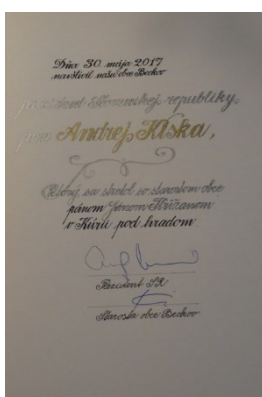 Dňa 30. mája 2017
navštívil našu obec Beckov
prezident Slovenskej republiky,
pán Andrej Kiska,
ktorý sa stretol so starostom obce
pánom
v Kúrii pod hradom.
Prezident SR
Starosta obce Beckov